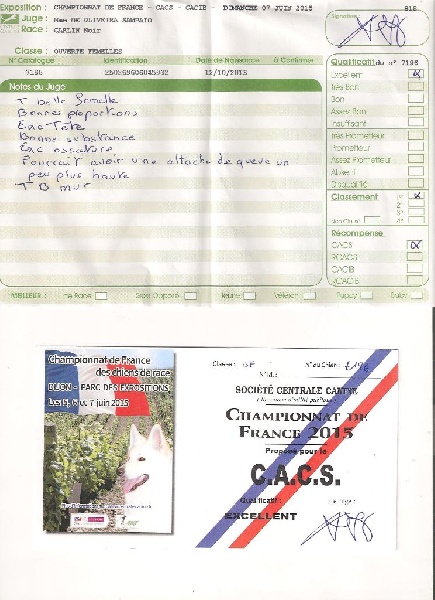 Exposition : CHAMPIONNAT DE FRANCE - CACS - CACIB - DIMANCHE 07 JUIN 2015 816
Juge : Mme DE OLIVEIRA SAMPAIO
Race : CARLIN Noir
Signature :
Classe : OUVERTE FEMELLES
N° Catalogue Identification Date de Naissance A Confirmer
7196 12/10/2013
Notes du Juge
T Belle femelle
Bonnes proportions
Exc Tete
Bonne substance
Exc ossature
Pourrait avoir une attache de queue un
peu plus haute
T B mvt
Qualificatif du n° 7196
Excellent
Très Bon
Bon
Assez Bon
Insuffisant
Très Prometteur
Prometteur
Assez Prometteur
Absent
Disqualifié
Classement 1er
2e
3e
Non Classé 4e
Récompense
CACS
RCACS
CACIB
RCACIB
MEILLEUR : de Race Sexe Opposé Jeune Vétéran Puppy Baby
Championnat de France
des chiens de race
DIJON - PARC DES EXPOSITIONS
Les 5, 6 et 7 juin 2015
Classe :
N° au Cat. 7196
SOCIÉTÉ CENTRALE CANINE
CHAMPIONNAT DE
FRANCE 2015
Proposé pour le
C.A.C.S.
Qualificatif :
EXCELLENT